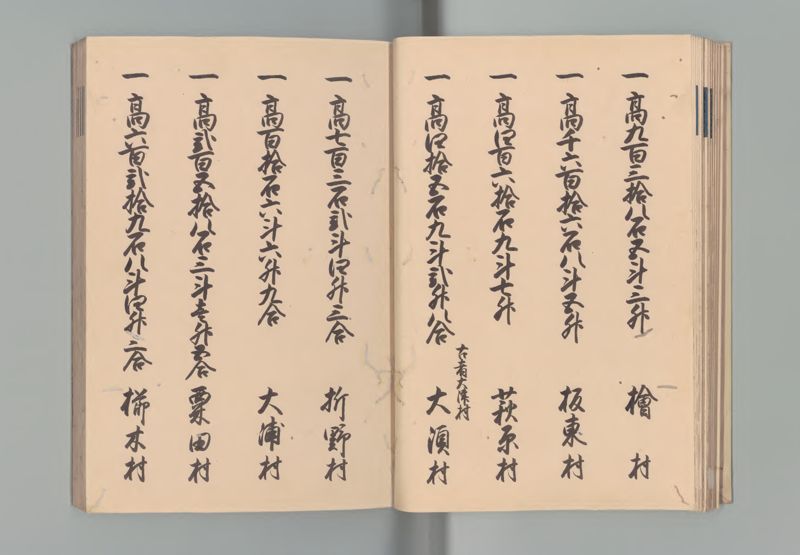 一高九百三拾八石五斗三升 檜村
一高千六百拾六石八斗五升 板東村
一高四百六拾石九斗七升 萩原村
一高四拾五石九斗弐升八合 大須村
一高七百三石弐斗四升三合 折野村
一高百拾石六斗六升九合 大浦村
一高弐百五拾八石三斗壱升五合 粟田村
一高六百弐拾九石八斗四升二合 櫛木村